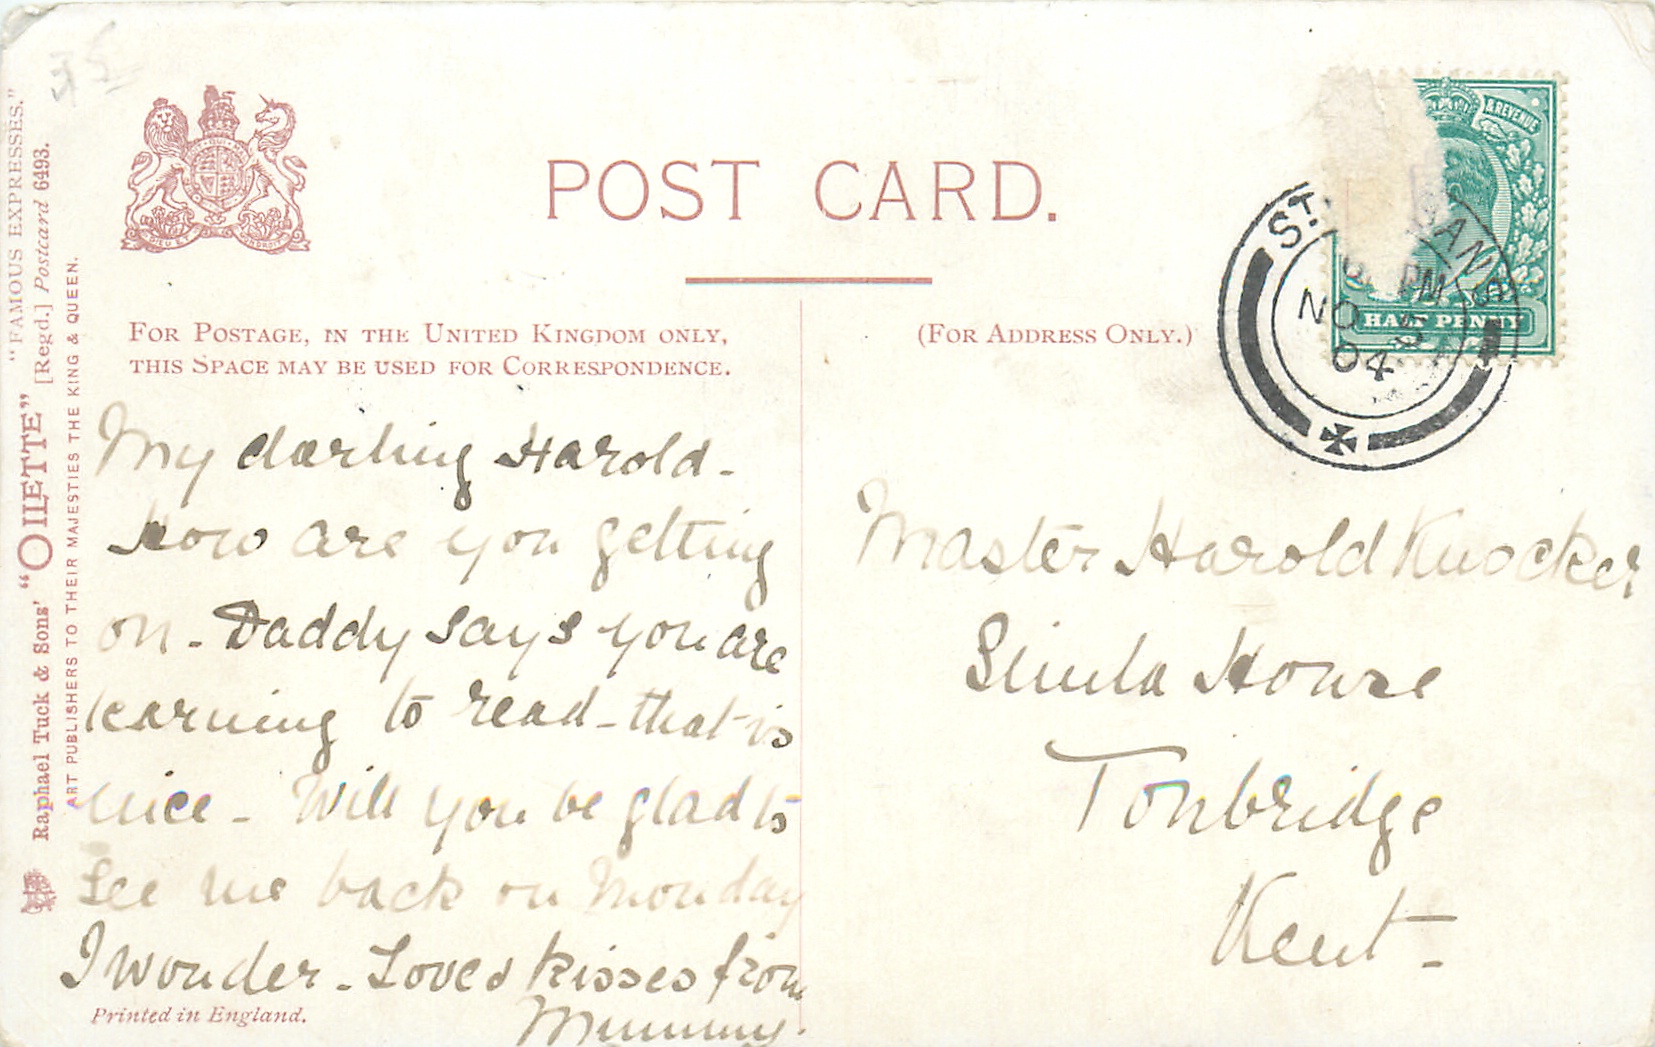 45
POST CARD.
FOR POSTAGE, IN THE UNITED KINGDOM ONLY,
THIS SPACE MAY BE USED FOR CORRESPONDENCE.
(FOR ADDRESS ONLY.)
& REVENUE
HALF PENNY
ST. BANS
PM
NO 5
04
My darling Harold -
How are you getting
on - Daddy says you are
learning to read - that is
nice - Will you be glad to
see me back on Monday
I wonder - Love & kisses from
Mummy.
Master Harold Knocker
Simla House
Tonbridge
Kent -
"FAMOUS EXPRESSES."
[Regd.] Postcard 6493.
Raphael Tuck & Sons' "OILETTE"
ART PUBLISHERS TO THEIR MAJESTIES THE KING & QUEEN.
Printed in England.